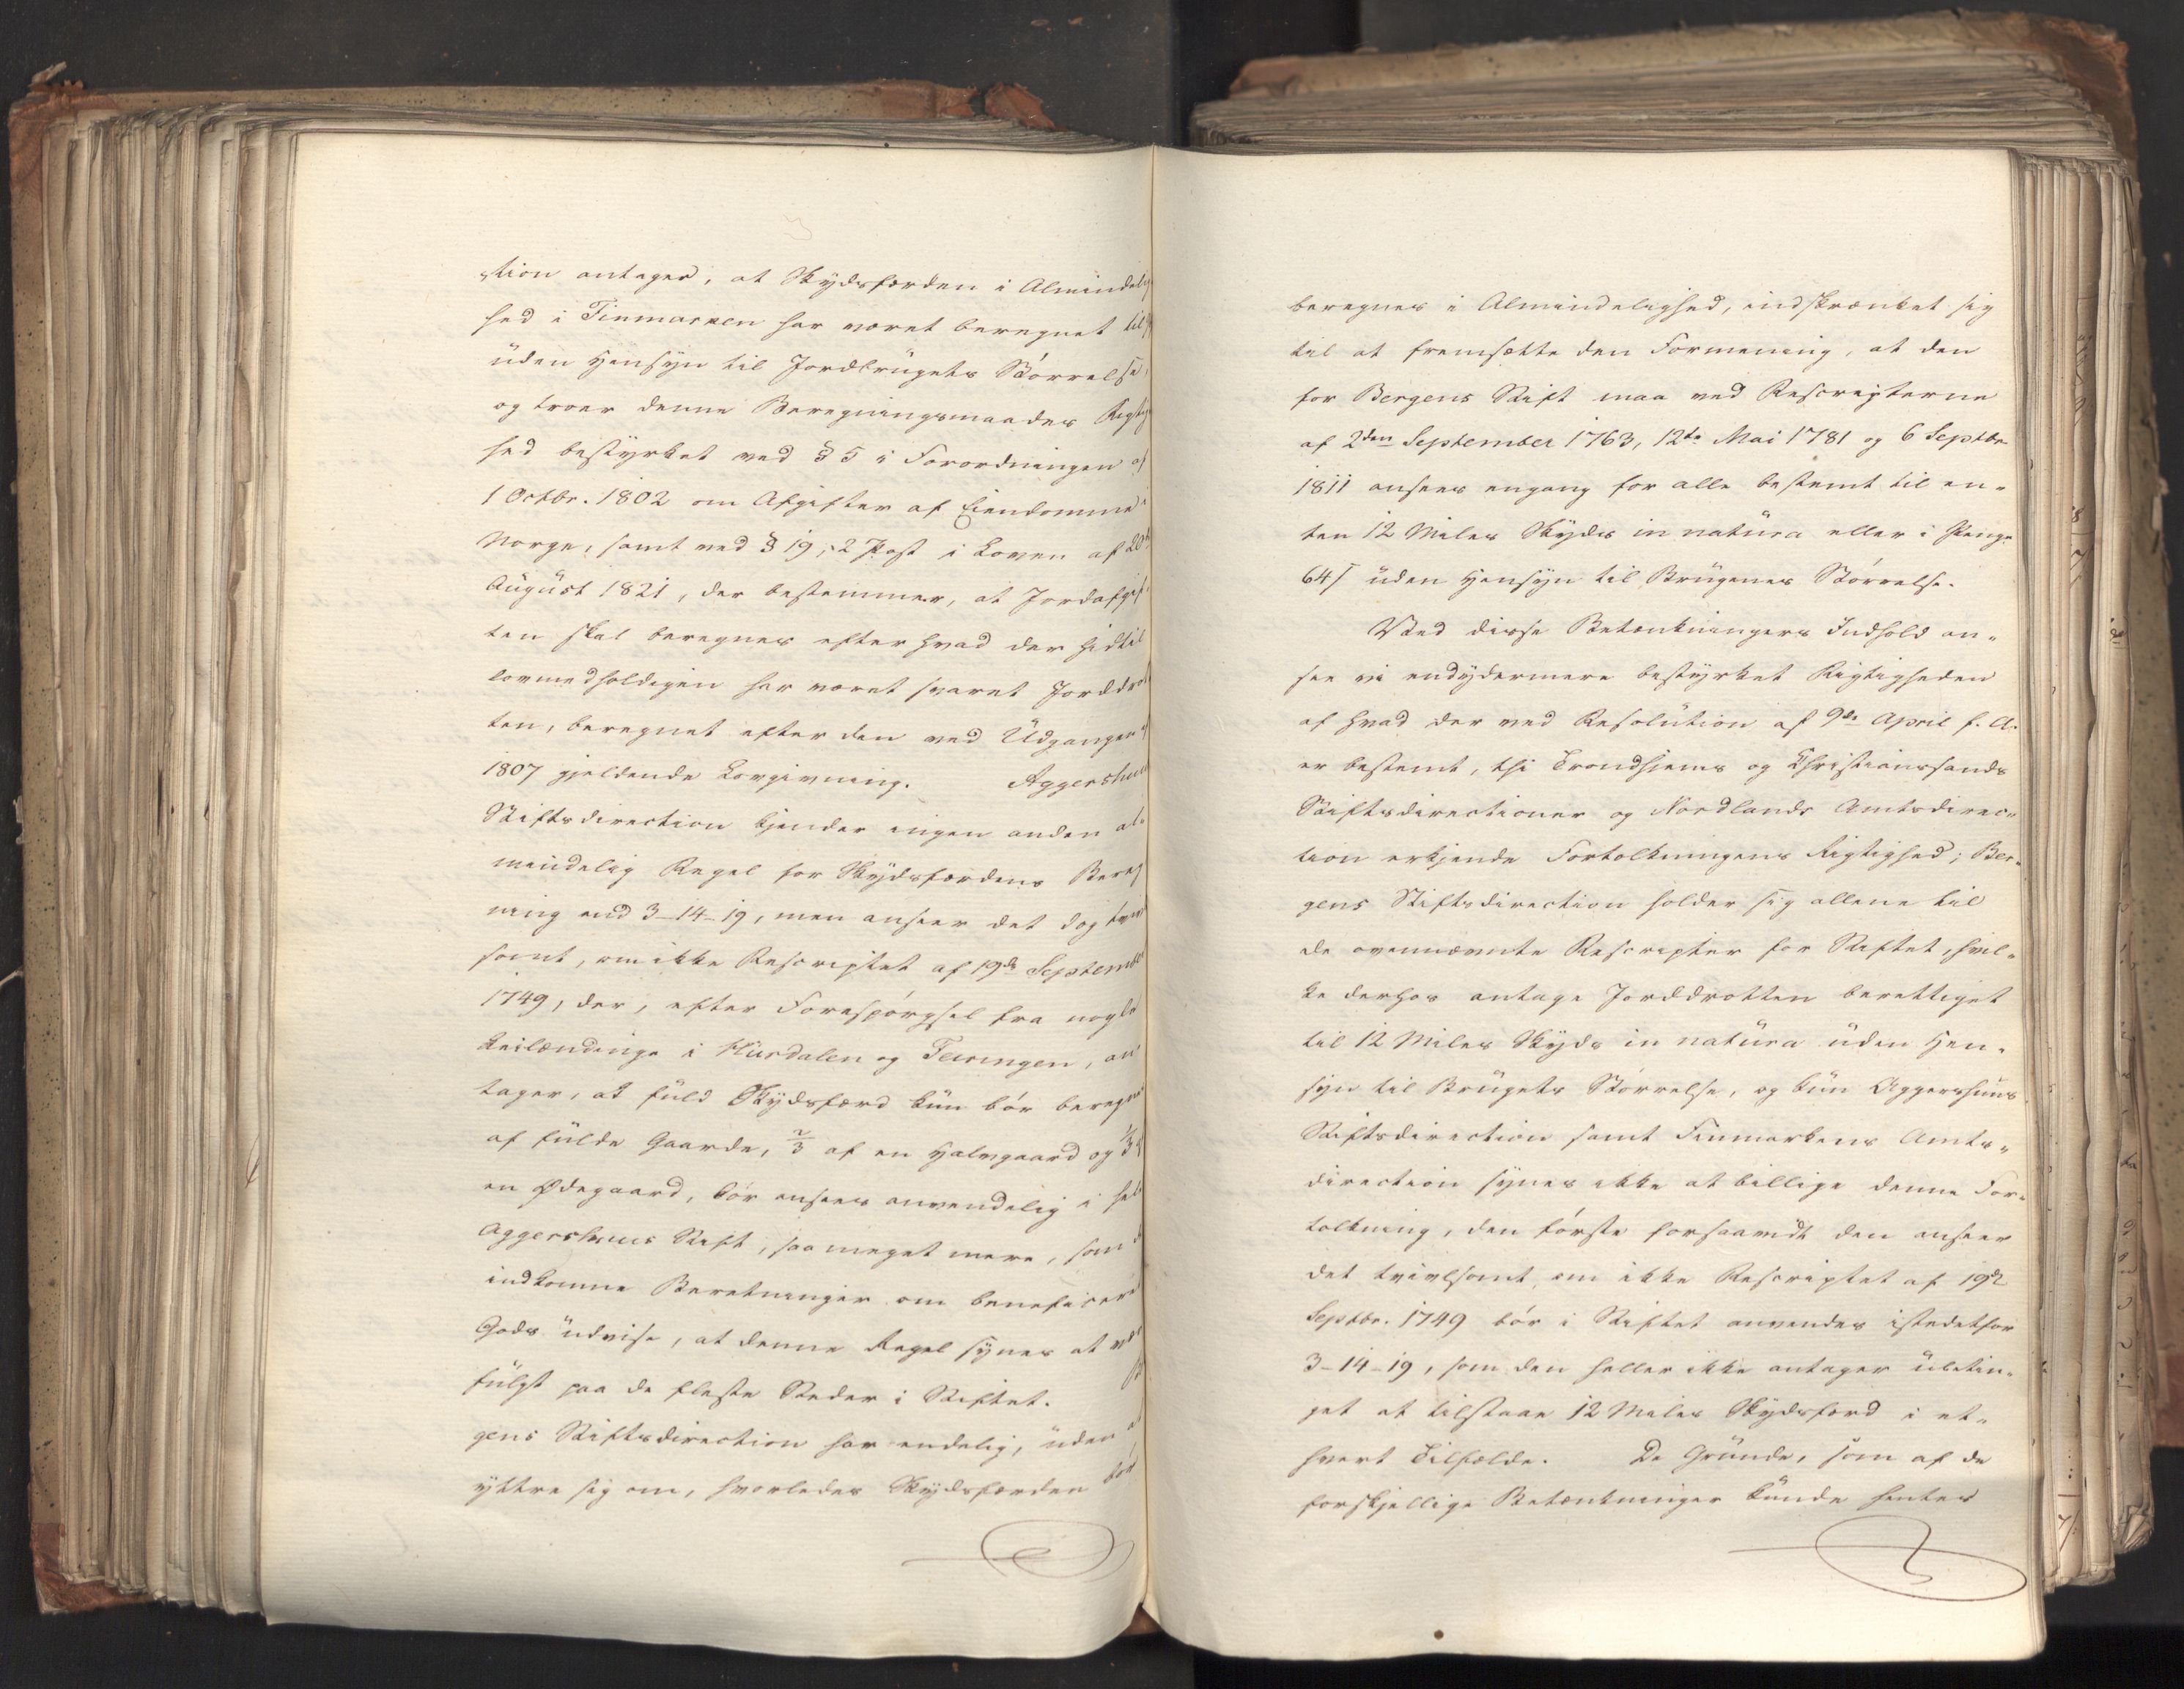 tion antager, at Skydsfærden i Almindelig
hed i Finmarken har været beregnet til
uden Hensyn til Jordbrugets Størrelse,
og troer denne Beregningsmaades Rigtig
hed bestyrket ved § 5 i Forordningen af
1 Octbr. 1802 om Afgifter af Eiendomme i
Norge, samt ved § 19, 2 Post i Loven af 20de
August 1821, der bestemmer, at Jordafgif
ten skal beregnes efter hvad der hidtil
lovmedholdigen har været svaret Jorddrot
ten, beregnet efter den ved Udgangen af
1807 gjeldende Lovgivning. Aggershuus
Stiftsdirection kjender ingen anden al-
mindelig Regel for Skydsfærdens Bereg
ning end 3-14-19, men anseer det dog tvivl
somt, om ikke Rescriptet af 19de September
1749, der, efter Forespørgsel fra nogle
Leilændinge i Hurdalen og Feiringen, an
tager, at fuld Skydsfærd kun bør beregnes
af fulde Gaarde, 2/3 af en Halvgaard og 1/3 af
en Ødegaard, bør ansees anvendelig i hele
Aggershuus Stift, saa meget mere, som de
indkomne Beretninger om beneficeret
Gods udvise, at denne Regel synes at være
fulgt paa de fleste Steder i Stiftet.
gens Stiftsdirection har endelig, uden at
yttre sig om, hvorledes Skydsfærden bør
beregnes i Almindelighed, indskrænket sig
til at fremsætte den Formening, at den
for Bergens Stift maa ved Rescripterne
af 2den September 1763, 12te Mai 1781 og 6 Septbr
1811 ansees engang for alle bestemt til en-
ten 12 Miles Skyds in natura eller i Penge
64 ß uden Hensyn til Brugenes Størrelse.
Ved disse Betænkningers Indhold an-
see vi endydermere bestyrket Rigtigheden
af hvad der ved Resolution af 9de April f. A.
er bestemt, thi Trondhjems og Christianssands
Stiftsdirectioner og Nordlands Amtsdirec-
tion erkjende Fortolkningens Rigtighed; Ber-
gens Stiftsdirection holder sig allene til
de ovennævnte Rescripter for Stiftet, hvil-
ke derhos antage Jorddrotten berettiget
til 12 Miles Skyds in natura uden Hen-
syn til Brugets Størrelse, og kun Aggershuus
Stiftsdirection samt Finmarkens Amts-
direction synes ikke at billige denne For-
tolkning, den første forsaavidt den anseer
det tvivlsomt om ikke Rescriptet af 19de
Septbr. 1749 bør i Stiftet anvendes istedetfor
3-14-19, som den heller ikke antager ubetin-
get at tilstaae 12 Miles Skydsferd i et-
hvert Tilfælde. De Grunde, som af de
forskjellige Betænkninger kunde hentes